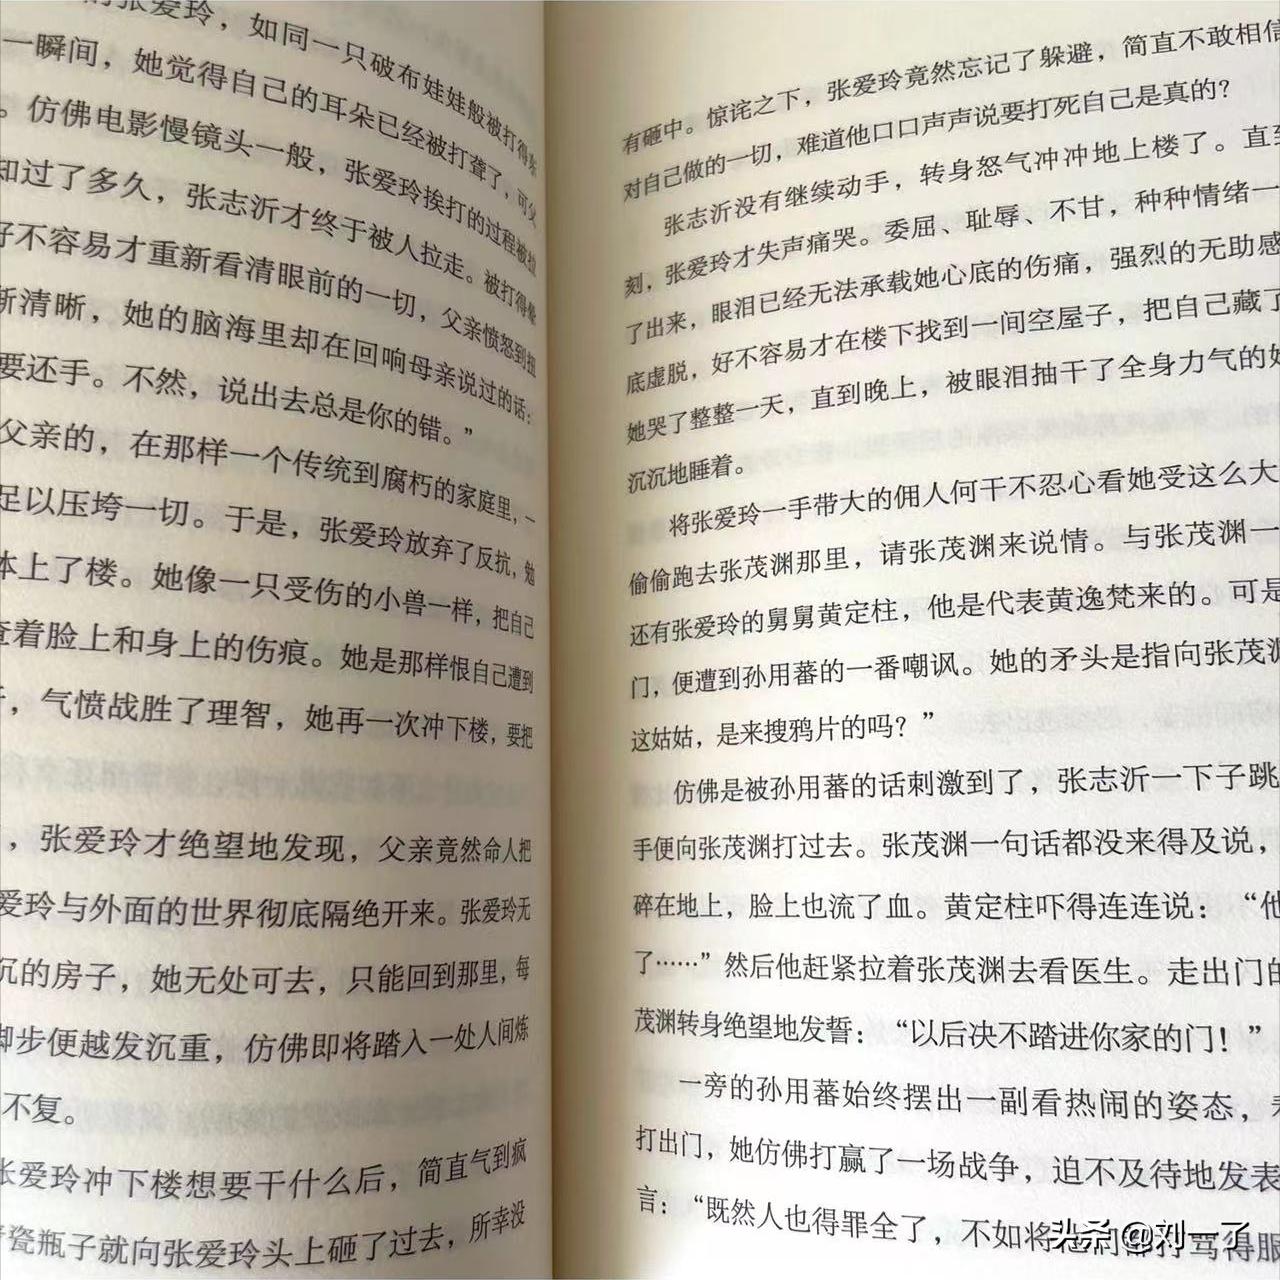 的张爱玲，如同一只破布娃娃般被打得东
一瞬间，她觉得自己的耳朵已经被打聋了，可父
。仿佛电影慢镜头一般，张爱玲挨打的过程被拉
知过了多久，张志沂才终于被人拉走。被打得晕
好不容易才重新看清眼前的一切，父亲愤怒到扭
渐清晰，她的脑海里却在回响母亲说过的话：
要还手。不然，说出去总是你的错。”
父亲的，在那样一个传统到腐朽的家庭里，一
足以压垮一切。于是，张爱玲放弃了反抗，勉
体上了楼。她像一只受伤的小兽一样，把自己
查着脸上和身上的伤痕。她是那样恨自己遭到
，气愤战胜了理智，她再一次冲下楼，要把
，张爱玲才绝望地发现，父亲竟然命人把
爱玲与外面的世界彻底隔绝开来。张爱玲无
沉的房子，她无处可去，只能回到那里，每
脚步便越发沉重，仿佛即将踏入一处人间炼
不复。
张爱玲冲下楼想要干什么后，简直气到疯
瓷瓶子就向张爱玲头上砸了过去，所幸没
有砸中。惊诧之下，张爱玲竟然忘记了躲避，简直不敢相信
对自己做的一切，难道他口口声声说要打死自己是真的？
张志沂没有继续动手，转身怒气冲冲地上楼了。直到
刻，张爱玲才失声痛哭。委屈、耻辱、不甘，种种情绪一
了出来，眼泪已经无法承载她心底的伤痛，强烈的无助感
底虚脱，好不容易才在楼下找到一间空屋子，把自己藏了
她哭了整整一天，直到晚上，被眼泪抽干了全身力气的她
沉沉地睡着。
将张爱玲一手带大的佣人何干不忍心看她受这么大
偷偷跑去张茂渊那里，请张茂渊来说情。与张茂渊一
还有张爱玲的舅舅黄定柱，他是代表黄逸梵来的。可是
门，便遭到孙用蕃的一番嘲讽。她的矛头是指向张茂渊
这姑姑，是来搜鸦片的吗？”
仿佛是被孙用蕃的话刺激到了，张志沂一下子跳
手便向张茂渊打过去。张茂渊一句话都没来得及说，
碎在地上，脸上也流了血。黄定柱吓得连连说：“他
了……”然后他赶紧拉着张茂渊去看医生。走出门的
茂渊转身绝望地发誓：“以后决不踏进你家的门！”
一旁的孙用蕃始终摆出一副看热闹的姿态，看
打出门，她仿佛打赢了一场战争，迫不及待地发表
言：“既然人也得罪全了，不如将他们都打骂得服
头杀 @刘一了